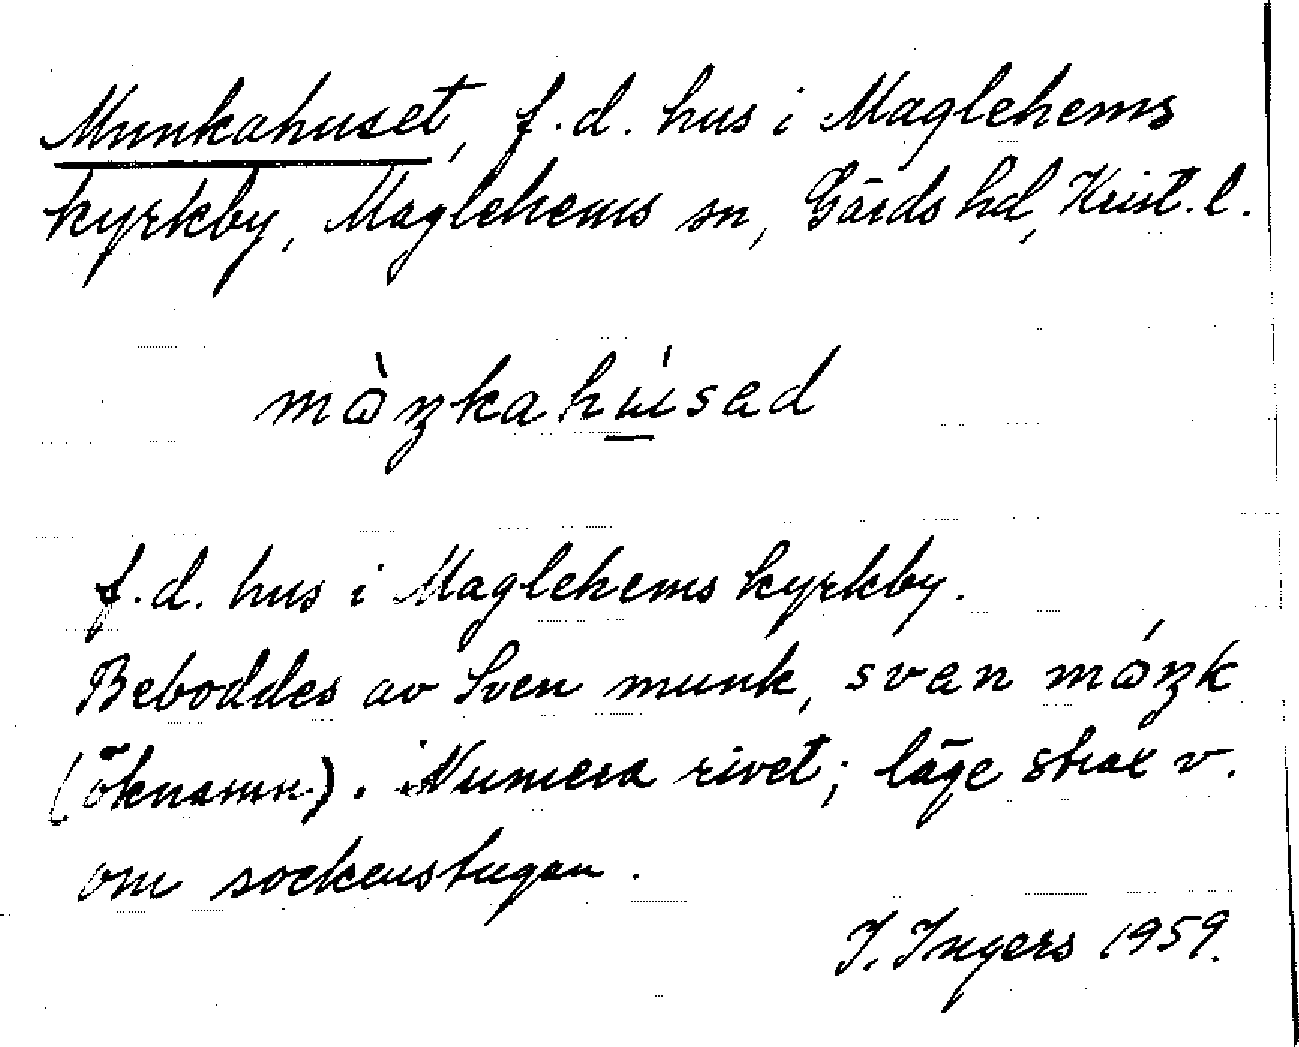 Munkahuset, f.d. hus i Maglehems
kyrkby, Maglehems sn, Gärds hd, Krist. l.
mòŋkahúsad
f.d. hus i Maglehems kyrkby.
Beboddes av Sven munk, svan móŋk
(öknamn). Numera rivet; läge strax v.
om sockenstugan.
I. Ingers 1959.